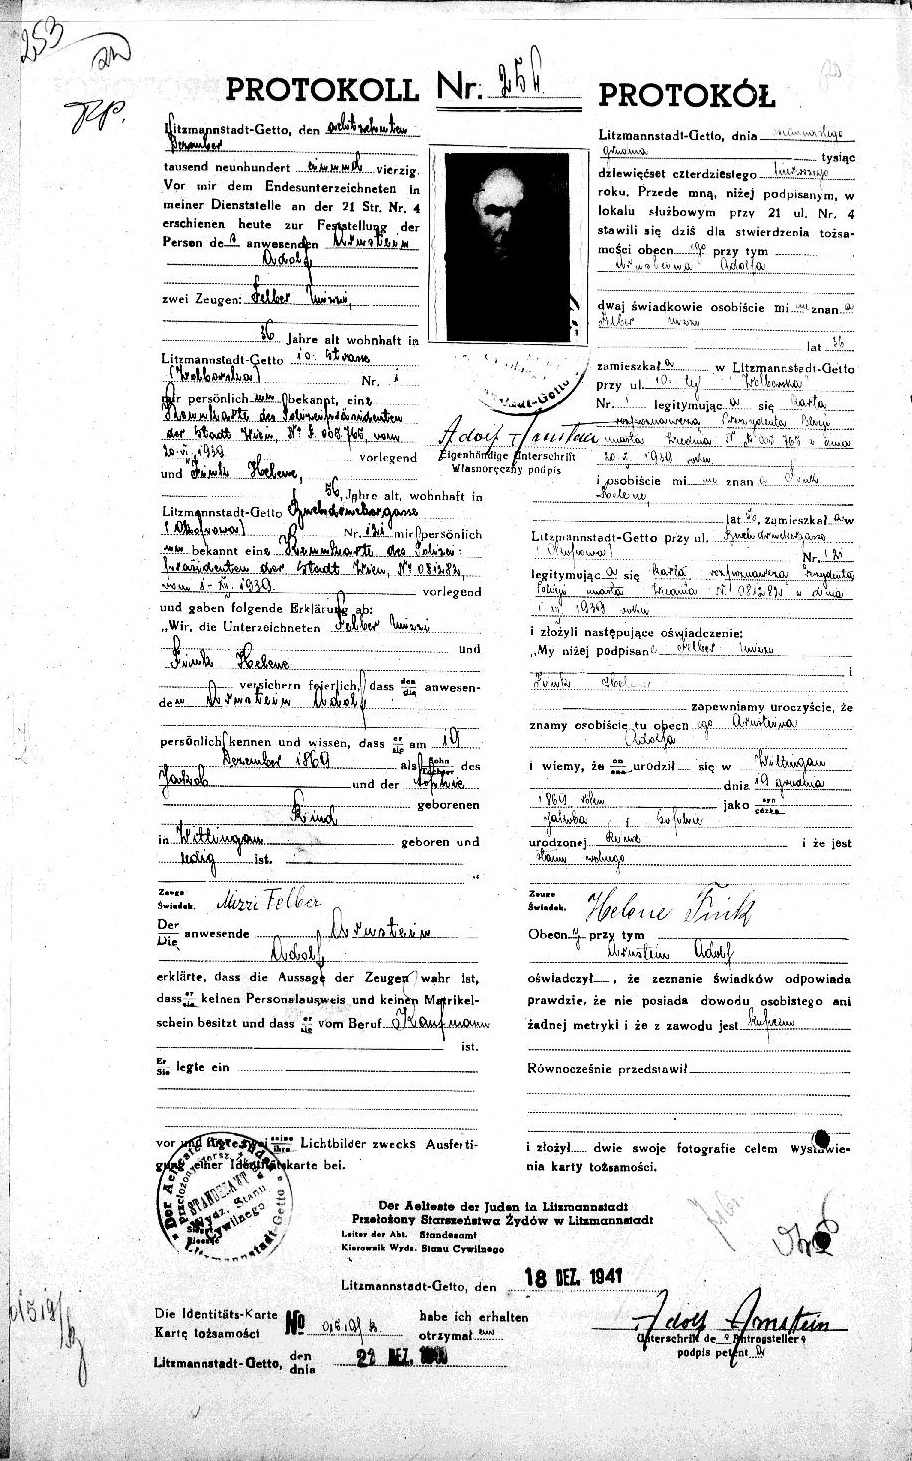 253
PROTOKOLL Nr. 254
Litzmannstadt-Getto, den achtzehnten
Dezember
tausend neunhundert einund vierzig.
Vor mir dem Endesunterzeichneten in
meiner Dienststelle an der 21 Str. Nr. 4
erschienen heute zur Feststellung der
Person des anwesenden Arnstein
Adolf
zwei Zeugen: Felber Mizzi,
36 Jahre alt wohnhaft in
Litzmannstadt-Getto 10. Strasse
(Wolborska) Nr. 1
mir persönlich nun bekannt, eine
Kennkarte des Polizeipräsidenten
der Stadt Wien, No 005765 vom
20. VI. 1939 vorlegend
und Fink Helene,
36, Jahre alt, wohnhaft in
Litzmannstadt-Getto Buchdruckergasse
Nr. 121 mir persönlich
bekannt eine Kennkarte des Polizei-
präsidenten der Stadt Wien, No 081282,
vom 1. 1939 vorlegend
und gaben folgende Erklärung ab:
„Wir, die Unterzeichneten Felber Mizzi
und
Fink Helene
versichern feierlich, dass den/die anwesen-
den Arnstein Adolf
persönlich kennen und wissen, dass er/sie am 19
Dezember 1869 als Sohn/Tochter des
Jakob und der Sophie
geborenen
Kind
in Wittingau geboren und
ledig ist.
Zeuge
Świadek. Mizzi Felber
Der/Die anwesende Arnstein
Adolf
erklärte, dass die Aussage der Zeugen wahr ist,
dass er/sie keinen Personalausweis und keinen Matrikel-
schein besitzt und dass er/sie vom Beruf Kaufmann
ist.
Er/Sie legte ein
vor und fügte zwei seine/ihre Lichtbilder zwecks Ausferti-
gung einer Identitätskarte bei.
Adolf Arnstein
Eigenhändige Unterschrift
Własnoręczny podpis
PROTOKÓŁ
Litzmannstadt-Getto, dnia osiemnastego
grudnia tysiąc
dziewięćset czterdziestego pierwszego
roku. Przede mną, niżej podpisanym, w
lokalu służbowym przy 21 ul. Nr. 4
stawili się dziś dla stwierdzenia tożsa-
mości obecnego przy tym
Arnsteina Adolfa
dwaj świadkowie osobiście mi nieznana
Felber Mizzi
lat 36
zamieszkała w Litzmannstadt-Getto
przy ul. 10-tej Wolborska
Nr. 1 legitymująca się kartą
rozpoznawczą Prezydenta Policji
miasta Wiednia No 005765 z dnia
20. 1939 roku
i osobiście mi nieznana Fink
Helene,
lat 36, zamieszkała w
Litzmannstadt-Getto przy ul. Buchdruckergasse
Nr. 121
legitymująca się kartą rozpoznawczą Prezydenta
Policji miasta Wiednia No 081282 z dnia
1939 roku
i złożyli następujące oświadczenie:
„My niżej podpisane Felber Mizzi
i
Fink Helene
zapewniamy uroczyście, że
znamy osobiście tu obecnego Arnsteina
Adolfa
i wiemy, że on/ona urodził się w Wittingau
dnia 19 grudnia
1869 roku jako syn/córka
Jakóba i Sophie
urodzonej Kind i że jest
stanu wolnego
Zeuge
Świadek. Helene Fink
Obecny przy tym
Arnstein Adolf
oświadczył, że zeznanie świadków odpowiada
prawdzie, że nie posiada dowodu osobistego ani
żadnej metryki i że z zawodu jest kupcem
Równocześnie przedstawił
i złożył dwie swoje fotografie celem wystawie-
nia karty tożsamości.
Der Aelteste der Juden
Przełożony Starsz. Żydów
STANDESAMT
Wydz. Stanu
Cywilnego
Litzmannstadt-Getto
Der Aelteste der Juden in Litzmannstadt
Przełożony Starszeństwa Żydów w Litzmannstadt
Leiter der Abt. Standesamt
Kierownik Wydz. Stanu Cywilnego
Litzmannstadt-Getto, den 18 DEZ. 1941
Die Identitäts-Karte
Kartę tożsamości No
habe ich erhalten
otrzymałem
Adolf Arnstein
Unterschrift des Antragstellers
podpis petenta
Litzmannstadt-Getto, den/dnia 22 DEZ.